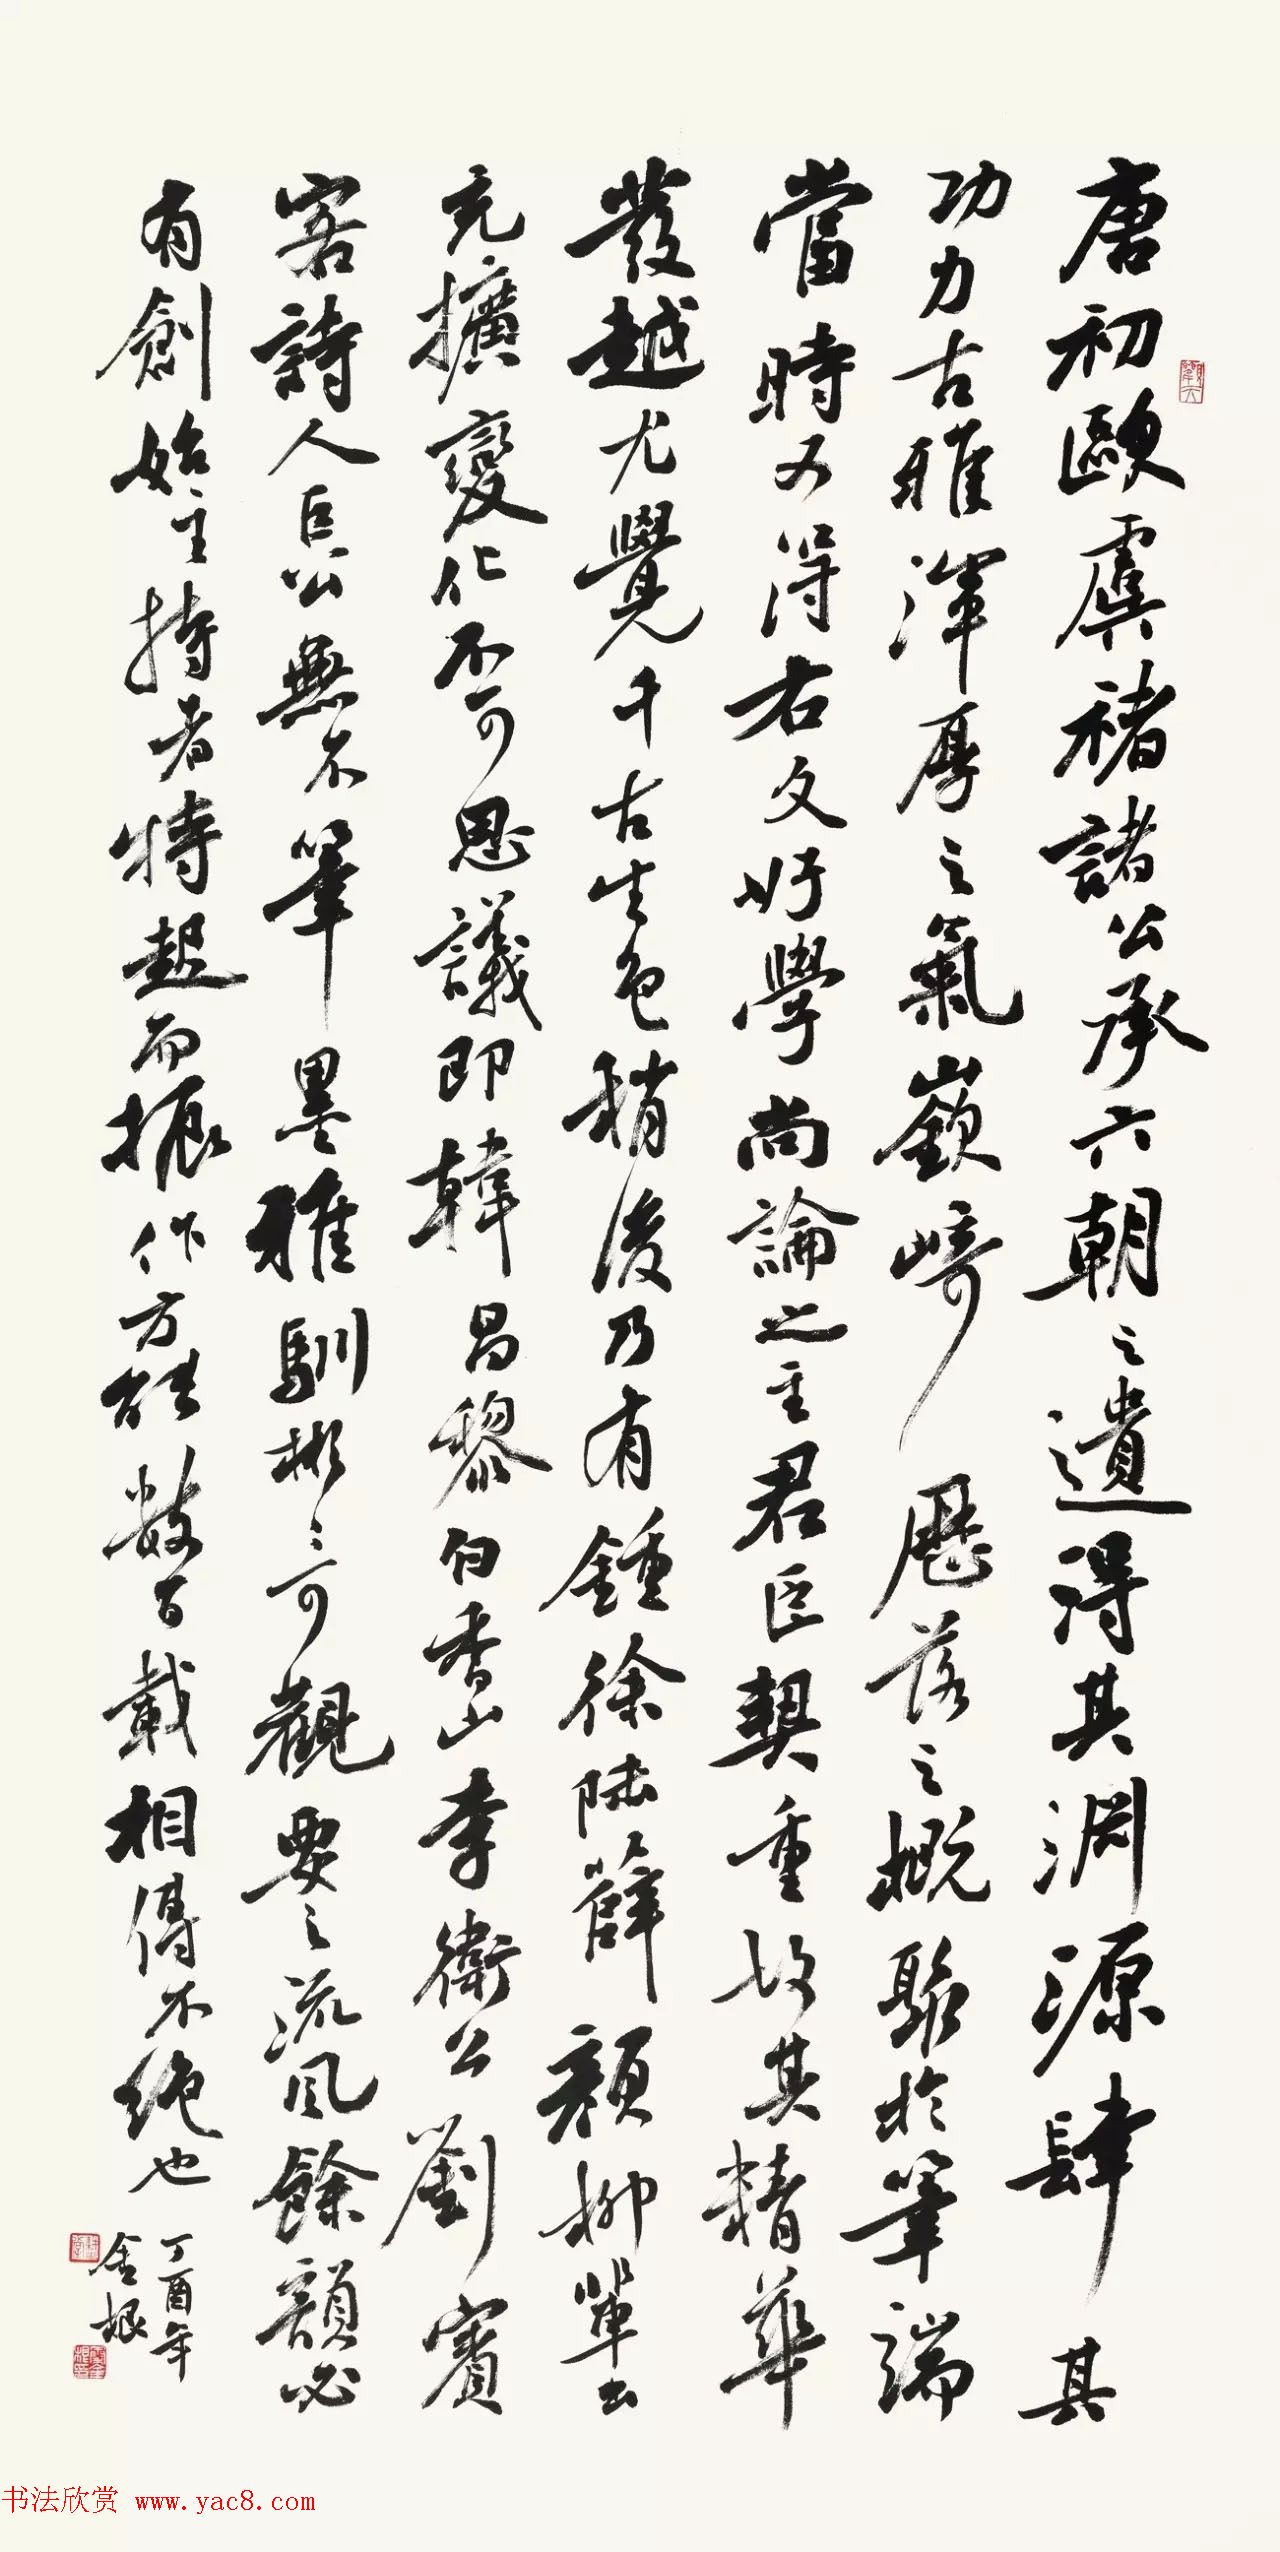 唐初歐虞褚諸公承六朝之遺得其淵源肆其
功力古雅渾厚之氣嶔崎歷落之概聚於筆端
當時又得右文好學尚論之主君臣契重故其精華
發越尤覺千古生色稍後乃有鍾徐陸薛顏柳輩出
充擴變化不可思議即韓昌黎白香山李衛公劉賓
客詩人巨公無不筆墨雅馴彬彬可觀要之流風餘韻必
有創始主持者特起而振作方能數百載相傳不絕也
丁酉年
金根
书法欣赏 www.yac8.com